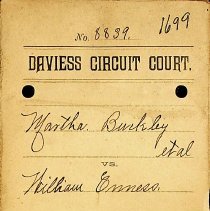 1699
No. 8839.
DAVIESS CIRCUIT COURT.
Martha Burkley
et al
VS.
William Enness.